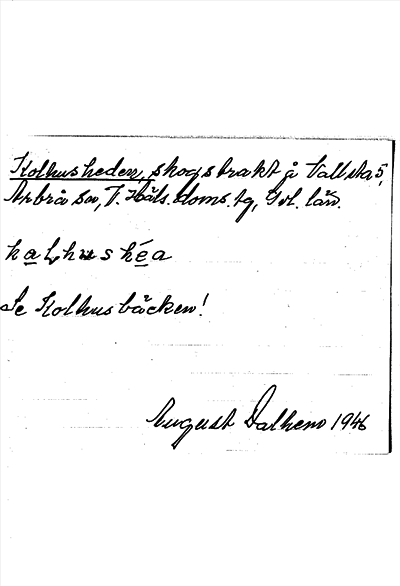 Kolhusheden, skogstrakt å Vallsta 5,
Arbrå sn, V. Häls. doms. tg, Gvl. län.
kaḷhushéa
Se Kolhusbäcken!
August Dalhem 1946